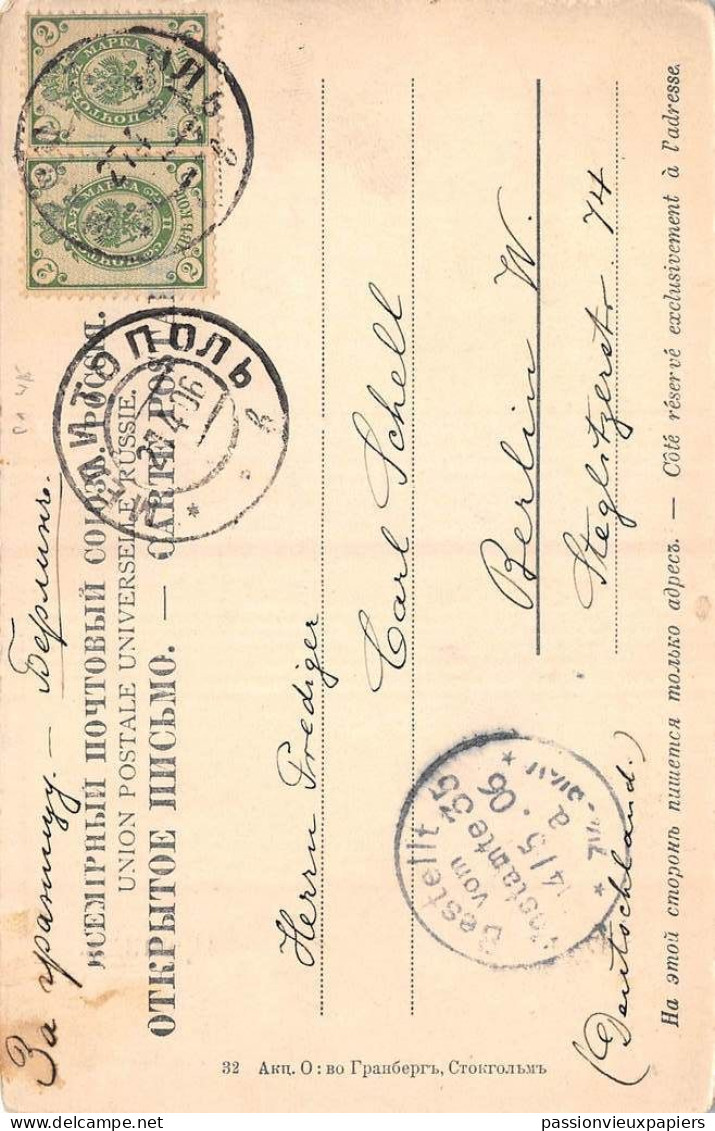 За границу. — Берлинъ.
ВСЕМІРНЫЙ ПОЧТОВЫЙ СОЮЗЪ. РОССІЯ.
UNION POSTALE UNIVERSELLE. RUSSIE.
ОТКРЫТОЕ ПИСЬМО. — CARTE POSTALE
Herrn Prediger
Carl Schell
Berlin W.
Steglitzerstr. 74
(Deutschland.)
На этой сторонѣ пишется только адресъ. — Côté réservé exclusivement à l'adresse.
МЕЛИТОПОЛЬ
27 4 06
в
Bestellt
vom
Postamte 35
14/5.06
2
МАРКА
2
2
МАРКА
2
32 Акц. О: во Гранбергъ, Стокгольмъ
passionvieuxpapiers